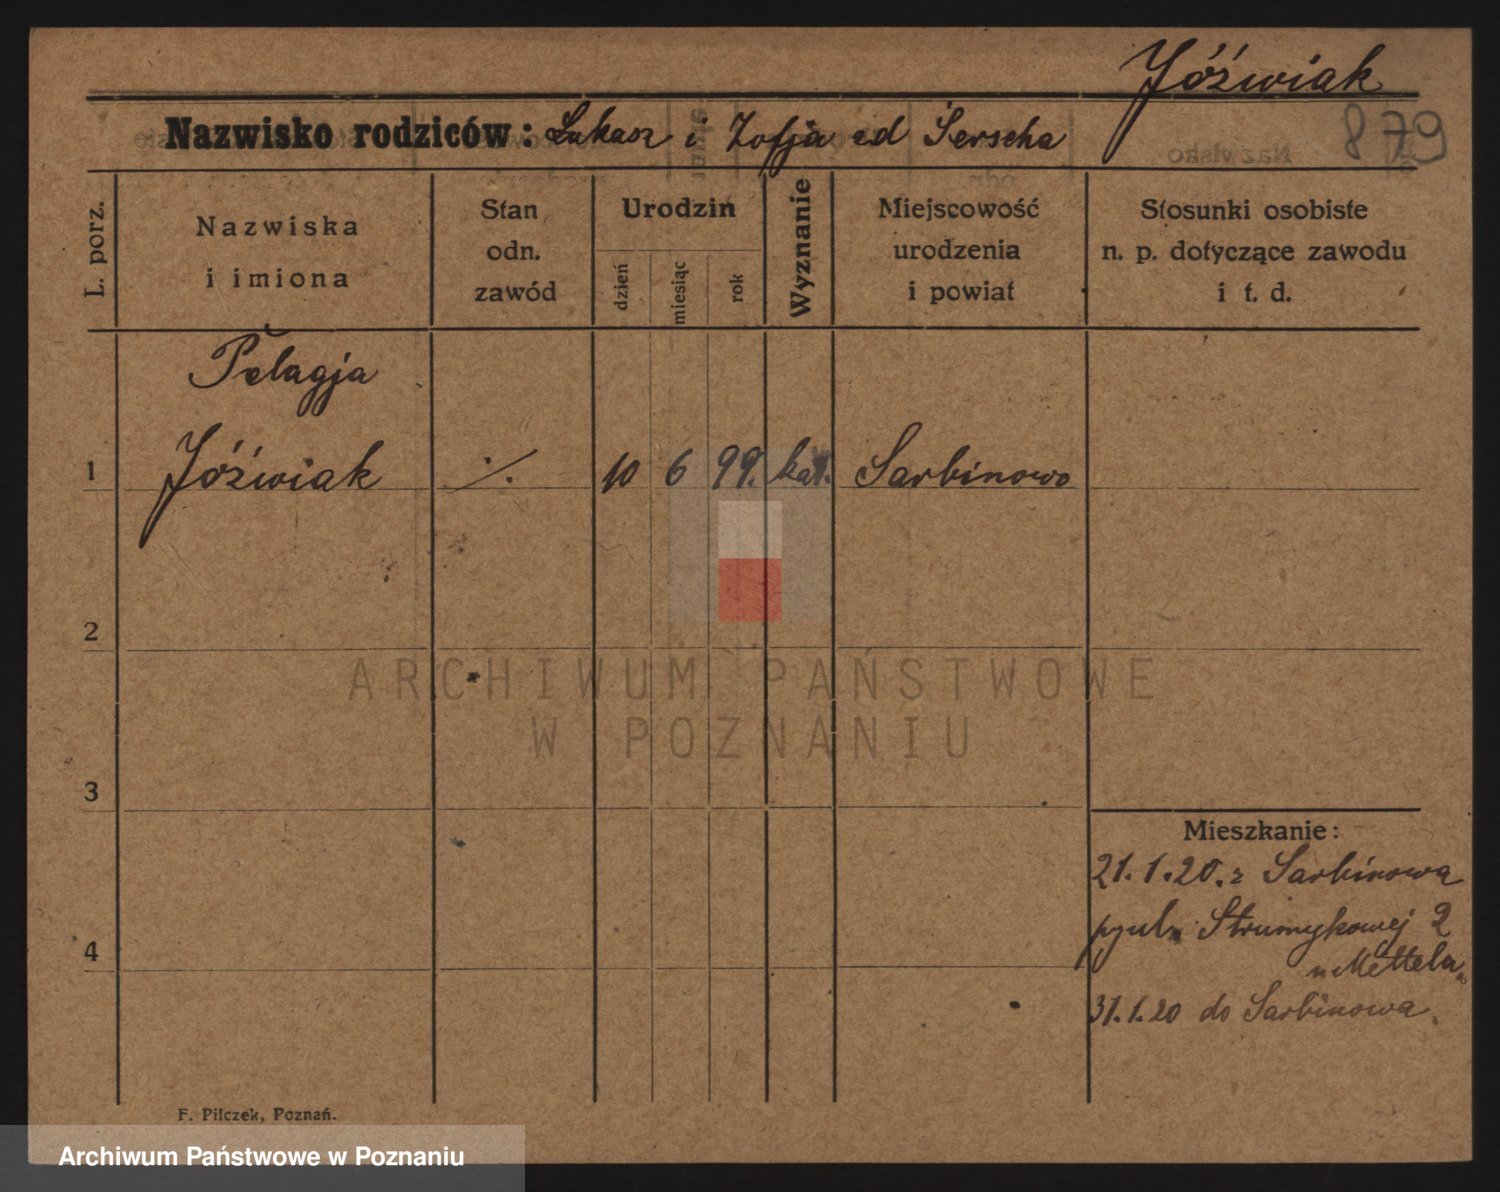 Jóźwiak
879
Nazwisko rodziców: Łukasz i Zofja ed Serscha
L. porz.
Nazwiska
i imiona
Stan
odn.
zawód
Urodzin
dzień
miesiąc
rok
Wyznanie
Miejscowość
urodzenia
i powiat
Stosunki osobiste
n. p. dotyczące zawodu
i t. d.
Pelagja
1 Jóźwiak ·/. 10 6 99. kat. Sarbinowo
2
ARCHIWUM PAŃSTWOWE
W POZNANIU
3
Mieszkanie:
21.1.20. z Sarbinowa
Strumykowej 2
u Mettela
4
31.1.20 do Sarbinowa.
F. Pilczek, Poznań.
Archiwum Państwowe w Poznaniu